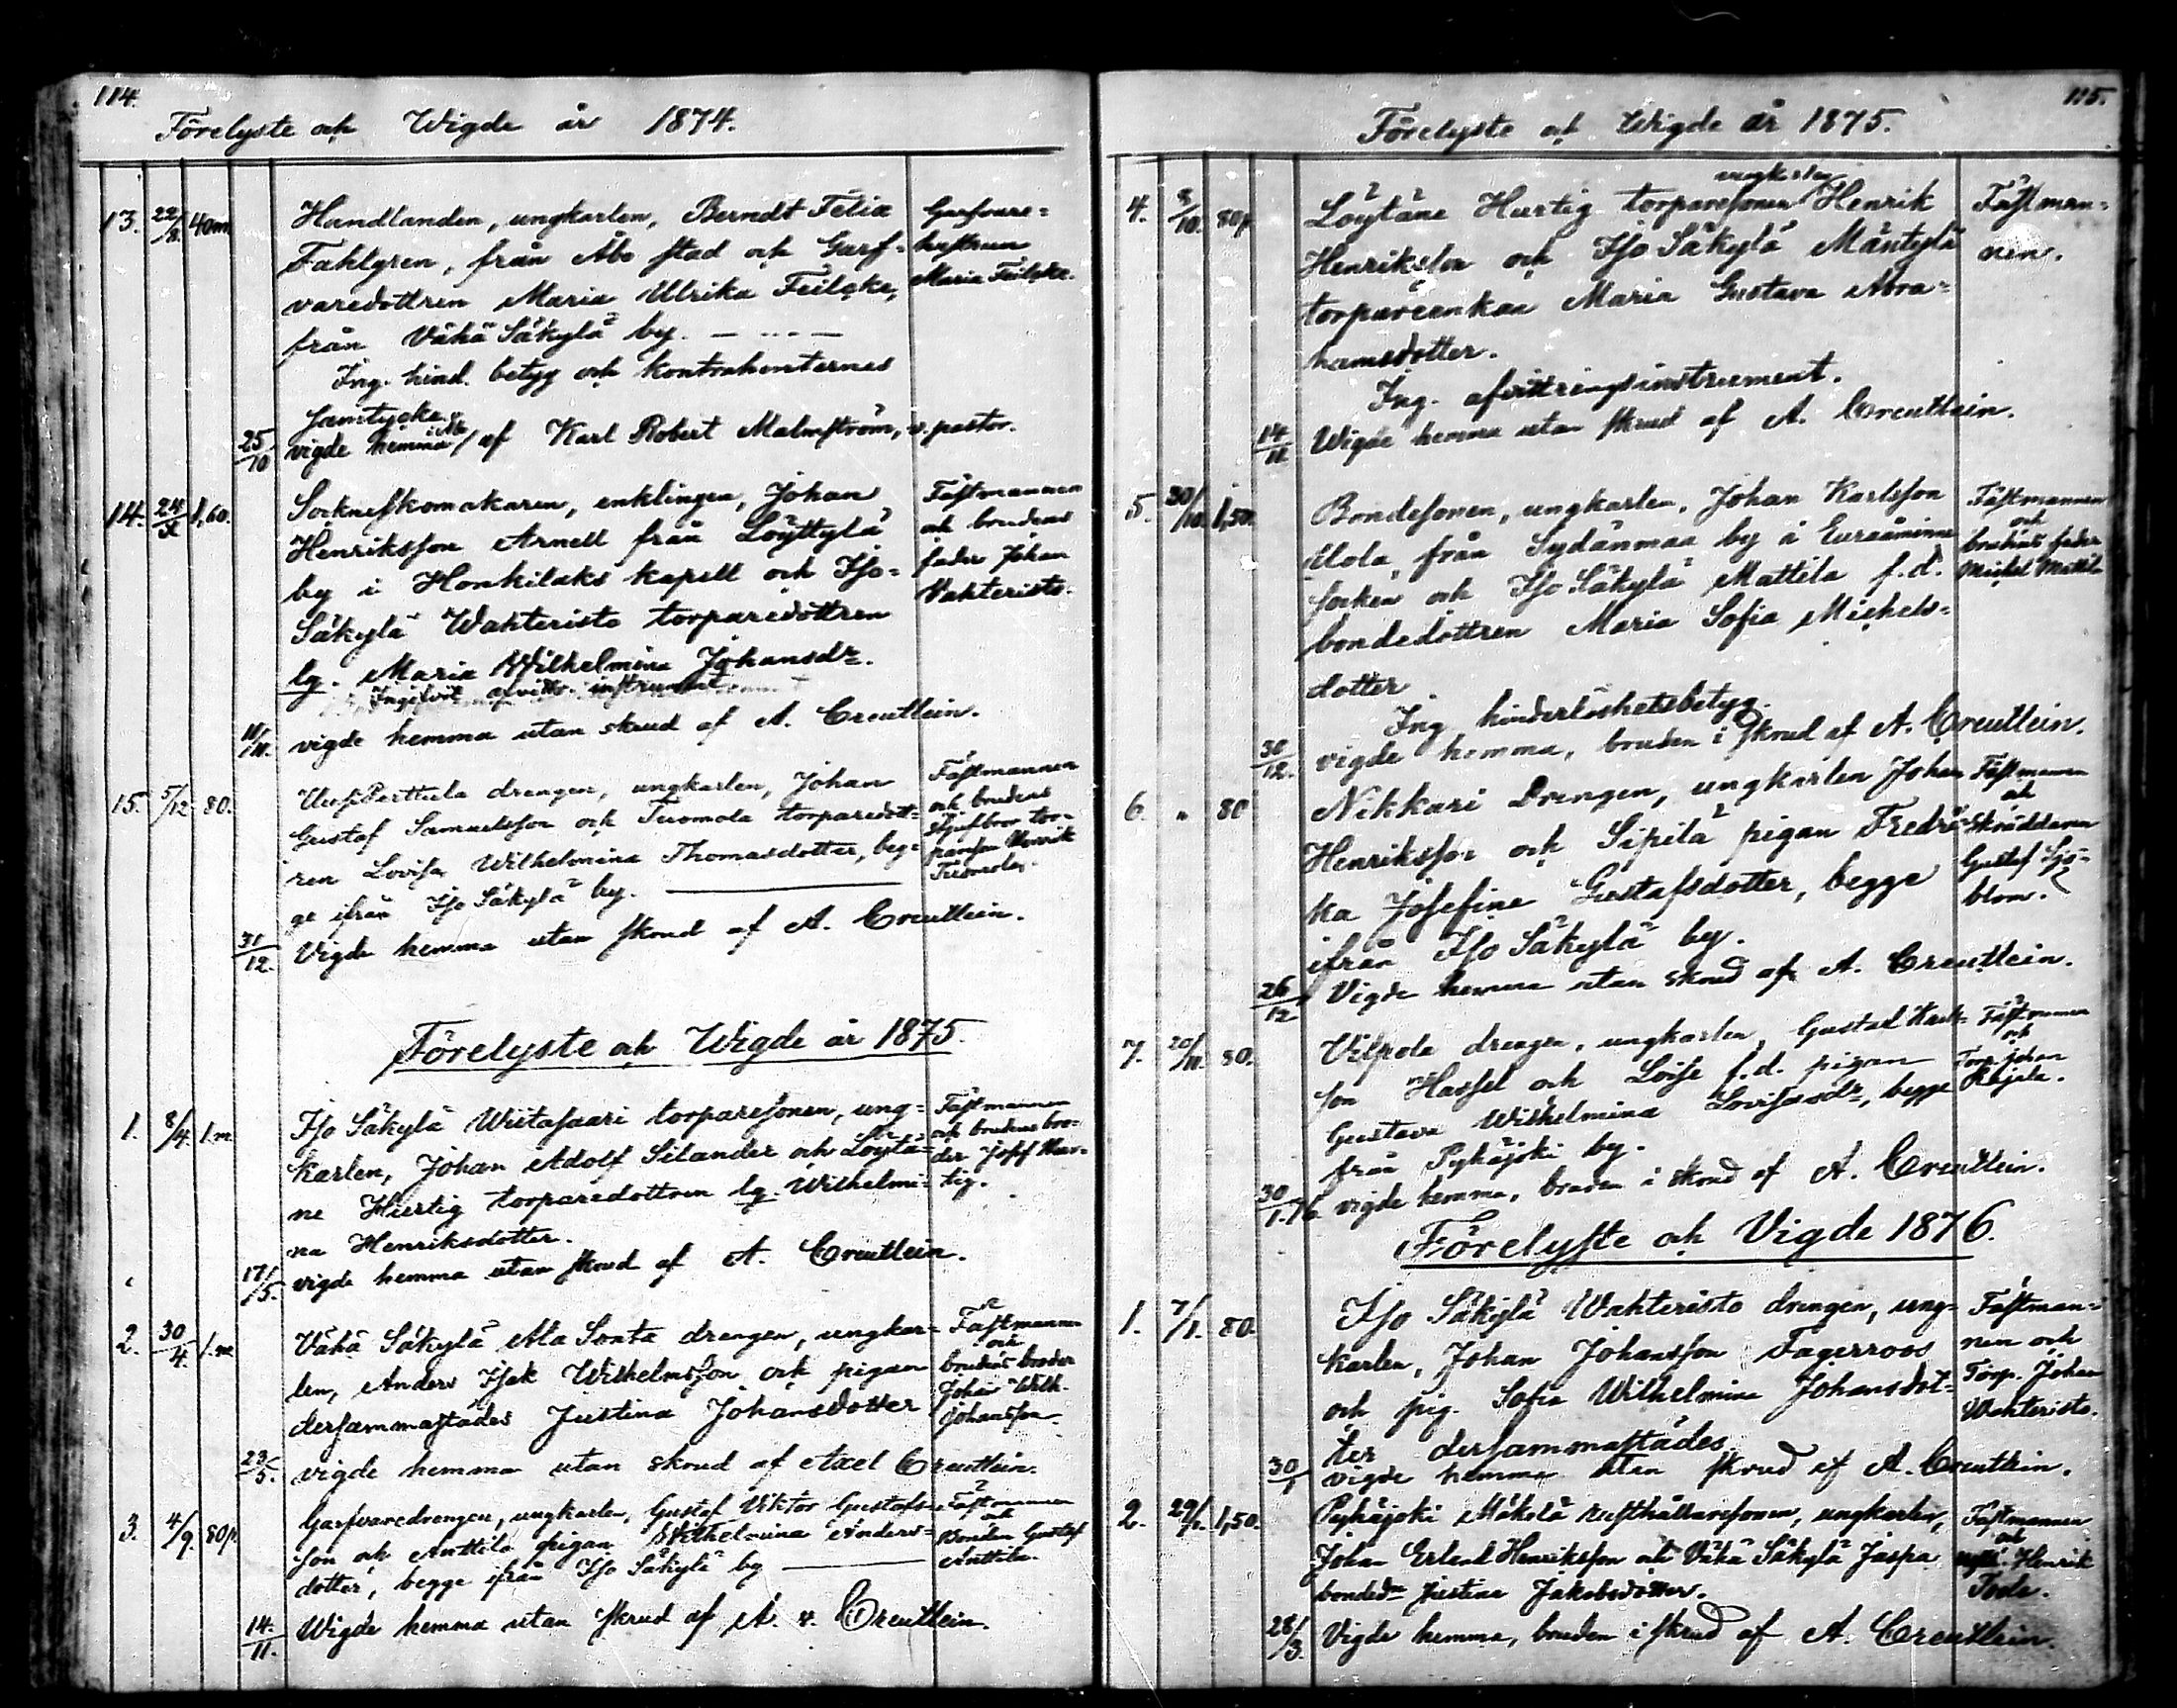 114.
Förelyste och Wigde år 1874.
13. 22/8. 40 m
Handlanden, ungkarlen, Berndt Felix
Fahlgren, från Åbo stad och Garf-
varedottren Maria Ulrika Feilcke,
från Vähä Säkylä by.
Garfvare-
hustrun
Maria Feilcke.
Ing. hind. betyg och kontrahenternes
samtycke.
25/10 vigde hemma af Karl Robert Malmström, v. pastor.
14. 24/X 1,60.
Sockneskomakaren, enklingen, Johan
Henriksson Arnell från Löyttylä
by i Honkilaks kapell och Iso-
Säkylä Wahteristo torparedottren
lg. Maria Wilhelmina Johansdr.
Fästmannen
och brudens
fader Johan
Vahteristo.
instrument
11/11. vigde hemma utan skrud af A. Creutlein.
15. 5/12 80.
drengen, ungkarlen, Johan
Gustaf Samuelsson och Tuomola torparedott-
ren Lovisa Wilhelmina Thomasdotter, beg-
ge ifrån Iso Säkylä by.
Fästmannen
och brudens
styfbror tor-
paren Henrik
Tuomola.
31/12. Vigde hemma utan skrud af A. Creutlein.
Förelyste och Wigde år 1875.
1. 8/4. 1. m
Iso Säkylä Wiitasaari torparesonen, ung-
karlen, Johan Adolf Silander och Löytä-
ne Hurtig torparedottren lg. Wilhelmi-
na Henriksdotter.
Fästmannen
och brudens bro-
der Josef Hur-
tig.
17/5. vigde hemma utan skrud af A. Creutlein.
2. 30/4. 1. m
Vähä Säkylä Ala Sonta drengen, ungkar-
len, Anders Isak Wilhelmsson och pigan
dersammastädes Justina Johansdotter
Fästmannen
och
brudens broder
Johan Wilh.
Johansson.
23/5. vigde hemma utan skrud af Axel Creutlein.
3. 4/9. 80 p.
Garfvaredrengen, ungkarlen, Gustaf Viktor Gustafs-
son och Anttila pigan Wilhelmina Anders-
dotter, begge ifrån Iso Säkylä by
Fästmannen
och
Bonden Gustaf
Anttila.
14./11. Wigde hemma utan skrud af A. v. Creutlein.
115.
Förelyste och Wigde år 1875.
4. 8/10. 80 p
ungkarlen
Löytäne Hurtig torparesonen Henrik
Henriksson och Iso Säkylä Mäntylä
torpareenkan Maria Gustava Abra-
hamsdotter.
Fästman-
nen.
Ing. afvittringsinstrument.
14/11 Wigde hemma utan skrud af A. Creutlein.
5. 30/10. 1,50.
Bondesonen, ungkarlen, Johan Karlsson
Uola, från Sydänmaa by i Euraåminne
socken och Iso Säkylä Mattila f.d.
bondedottren Maria Sofia Michels-
dotter.
Fästmannen
och
brudens fader
Michel Mattila
Ing hinderlöshetsbetyg.
30/12. vigde hemma, bruden i skrud af A. Creutlein.
6. " 80
Nikkari Drengen, ungkarlen Johan
Henriksson och Sipilä pigan Fredri-
ka Josefine Gustafsdotter, begge
ifrån Iso Säkylä by.
Fästmannen
och
Skräddaren
Gustaf Sjö-
blom.
26/12 Vigde hemma utan skrud af A. Creutlein.
7. 20/11. 80.
Vilpola drengen, ungkarlen, Gustaf Karls-
son Hassel och Loise f.d. pigan
Gustava Wilhelmina Lovisasdr, begge
från Pyhäjoki by.
Fästmannen
och
Torp. Johan
Rajala.
30/1.76. vigde hemma, bruden i skrud af A. Creutlein.
Förelyste och Vigde 1876.
1. 7/1. 80.
Iso Säkylä Wahteristo drengen, ung-
karlen, Johan Johansson Fagerroos
och pig. Sofia Wilhelmina Johansdot-
ter dersammastädes.
Fästman-
nen och
Torp. Johan
Wahteristo.
30/1 vigde hemma utan skrud af A. Creutlein.
2. 1,50.
Pyhäjoki Mäkelä rusthållaresonen, ungkarlen,
Johan Erland Henriksson och Vähä Säkylä Jaspa
bondedr Justina Jakobsdotter.
Fästmannen
och
Henrik
28/3. Vigde hemma, bruden i skrud af A. Creutlein.